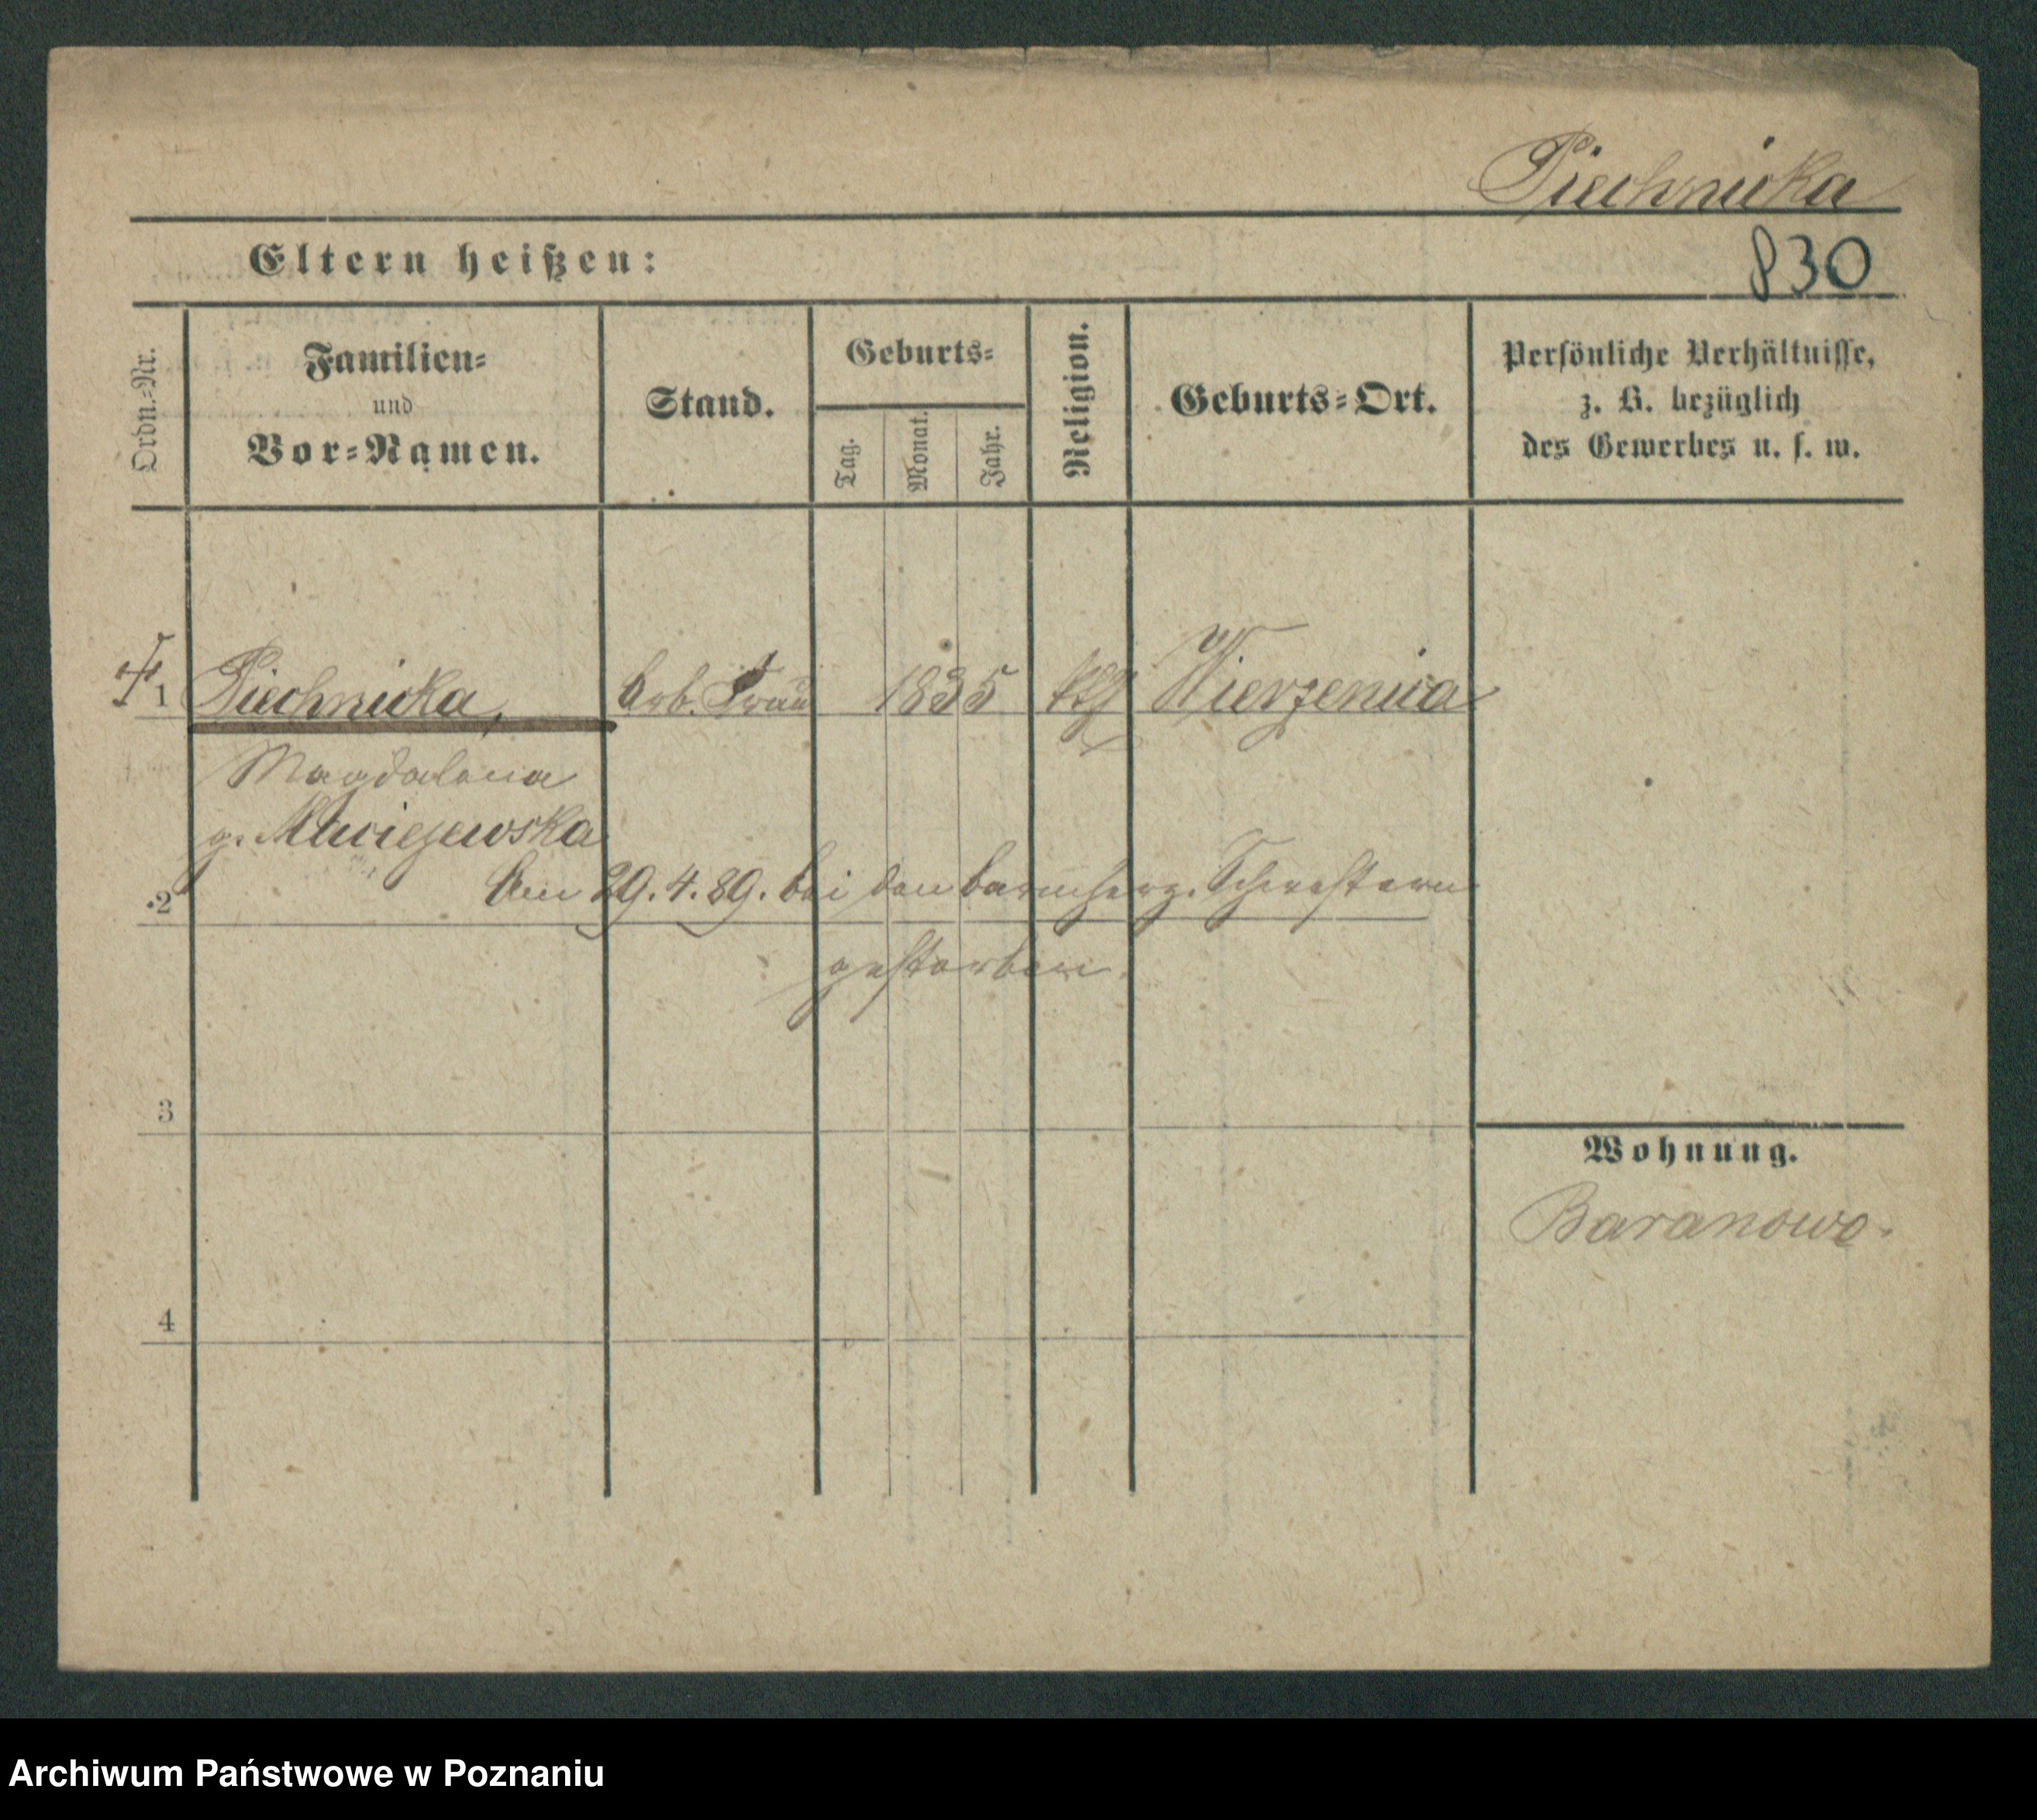 Piechnicka
Eltern heißen:
830
Ordn.-Nr.
Familien-
und
Vor-Namen.
Stand.
Geburts-
Tag.
Monat.
Jahr.
Religion.
Geburts-Ort.
Persönliche Verhältnisse,
z. B. bezüglich
des Gewerbes u. s. w.
1 Piechnicka, Arb. Frau 1835 kth Wierzenica
Magdalena
g. Maciejewska
Am 29. 4. 89. bei den barmherz. Schwestern
2
gestorben.
3
Wohnung.
Baranowo.
4
Archiwum Państwowe w Poznaniu